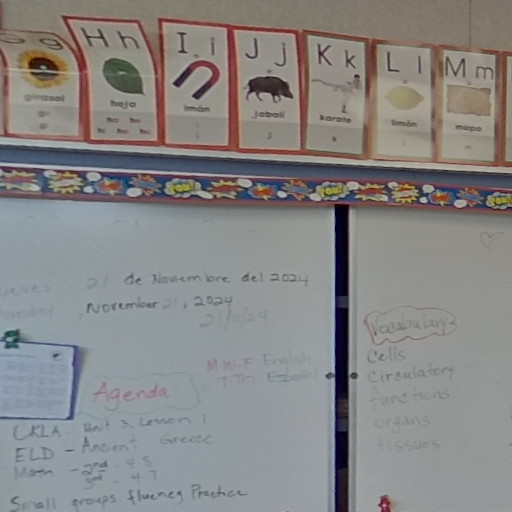 G g
girasol
gi
H h
hoja
ha he
hi ho hu
I i
imán
i
J j
jabalí
j
K k
karate
k
L l
limón
l
M m
mapa
m
POW!
21 de Noviembre del 2024
November 21, 2024
21/11/24
M-W-F English
T-Th Español
Agenda
CKLA - Unit 3, Lesson 1
ELD - Ancient Greece
Math - 2nd - 4.8
3rd - 4.7
Small groups fluency Practice
Vocabulary
Cells
Circulatory
functions
organs
tissues